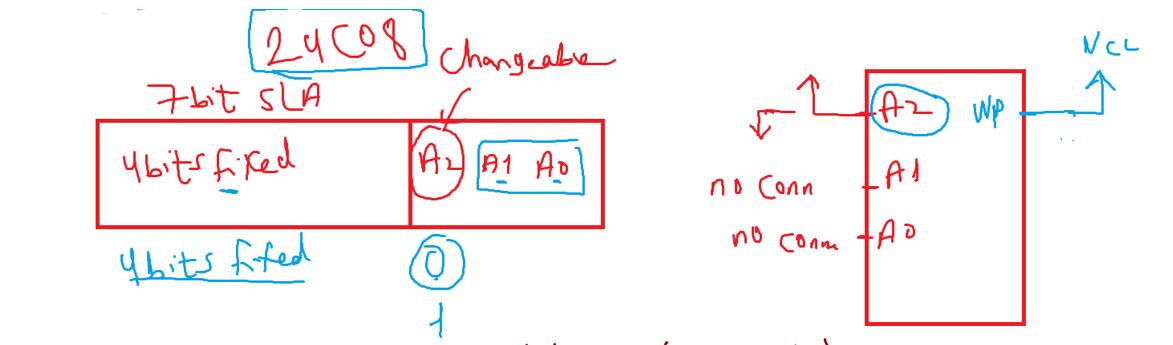 24C08
changeable
7bit SLA
4bits fixed
A2
A1 A0
4bits fixed
0
1
Vcc
A2 WP
no Conn
A1
no Conn
A0